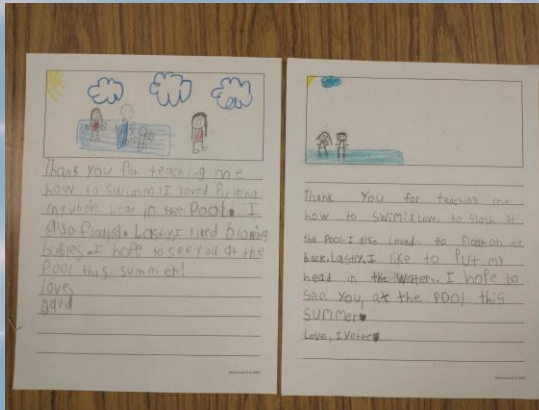 Thank you for teaching me
how to swimm! I loved Puting
my whole head in the Pool. I
also floated. Lastly, I liked blowing
bubles. I hope to see you at the
Pool this summer!
Love,
Thank You for teaching me
how to swim! I Love to slash at
the Pool. I also Loved to float on my
back. Lastly, I like to Put my
head in the Water. I hope to
see you, at the POOL this
summer
Love, Ivette